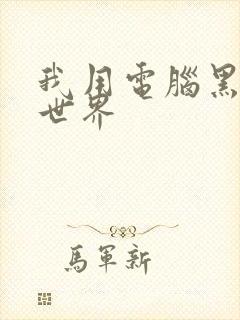 我用電腦黑
世界
馬軍新